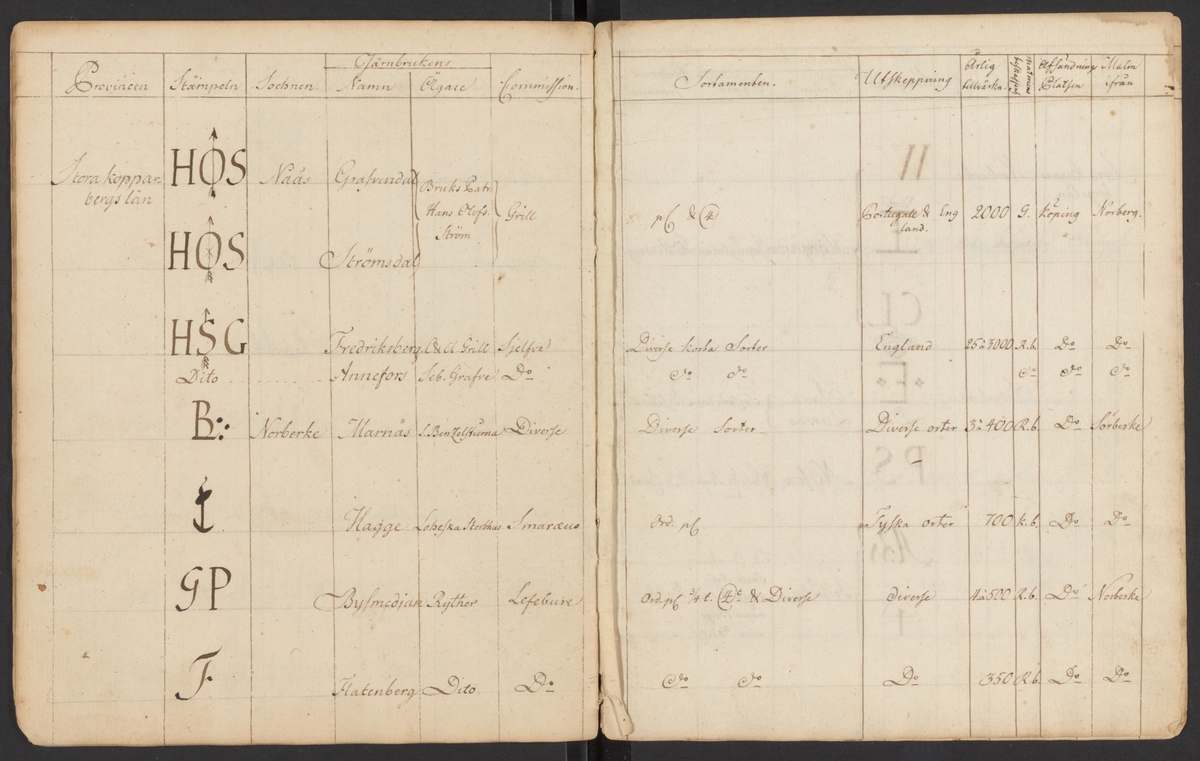 Järnbrukens
Provincen Stämpeln Sochnen. Namn Ägare Commission Sortamenten. Utskeppning Årlig tillvärkn. Afsändnings Platsen Malm ifrån
Stora Koppar- HOS Nääs Grafvendal Bruks Patr.
bergs län Hans Olofs. Grill pf & 4 Portugal & Eng 2000 G. Köping Norberg.
Ström land.
HOS Strömsdal
HSG Fredriksberg C & A Grill Sjelfve Diverse korta Sorter England 25 à 3000 R.b. Do Do
Dito Annefors Seb. Grafve Do do do do do do
B: Norberke Marnäs S. Benzelstierna Diverse Diverse Sorter Diverse orter 3 à 400 R.b. Do Sörberke
Hagge Loheska Sterbhus Smaræus Ord. pf Tyska orter 700 R.b. Do Do
GP Bysmedjan Ryther Lefebure Ord. pf 3/4 t. 4 & Diverse diverse 4 à 500 R.b. Do Norberke
F. Flatenberg Dito Do do do Do 350 R.b. Do Do